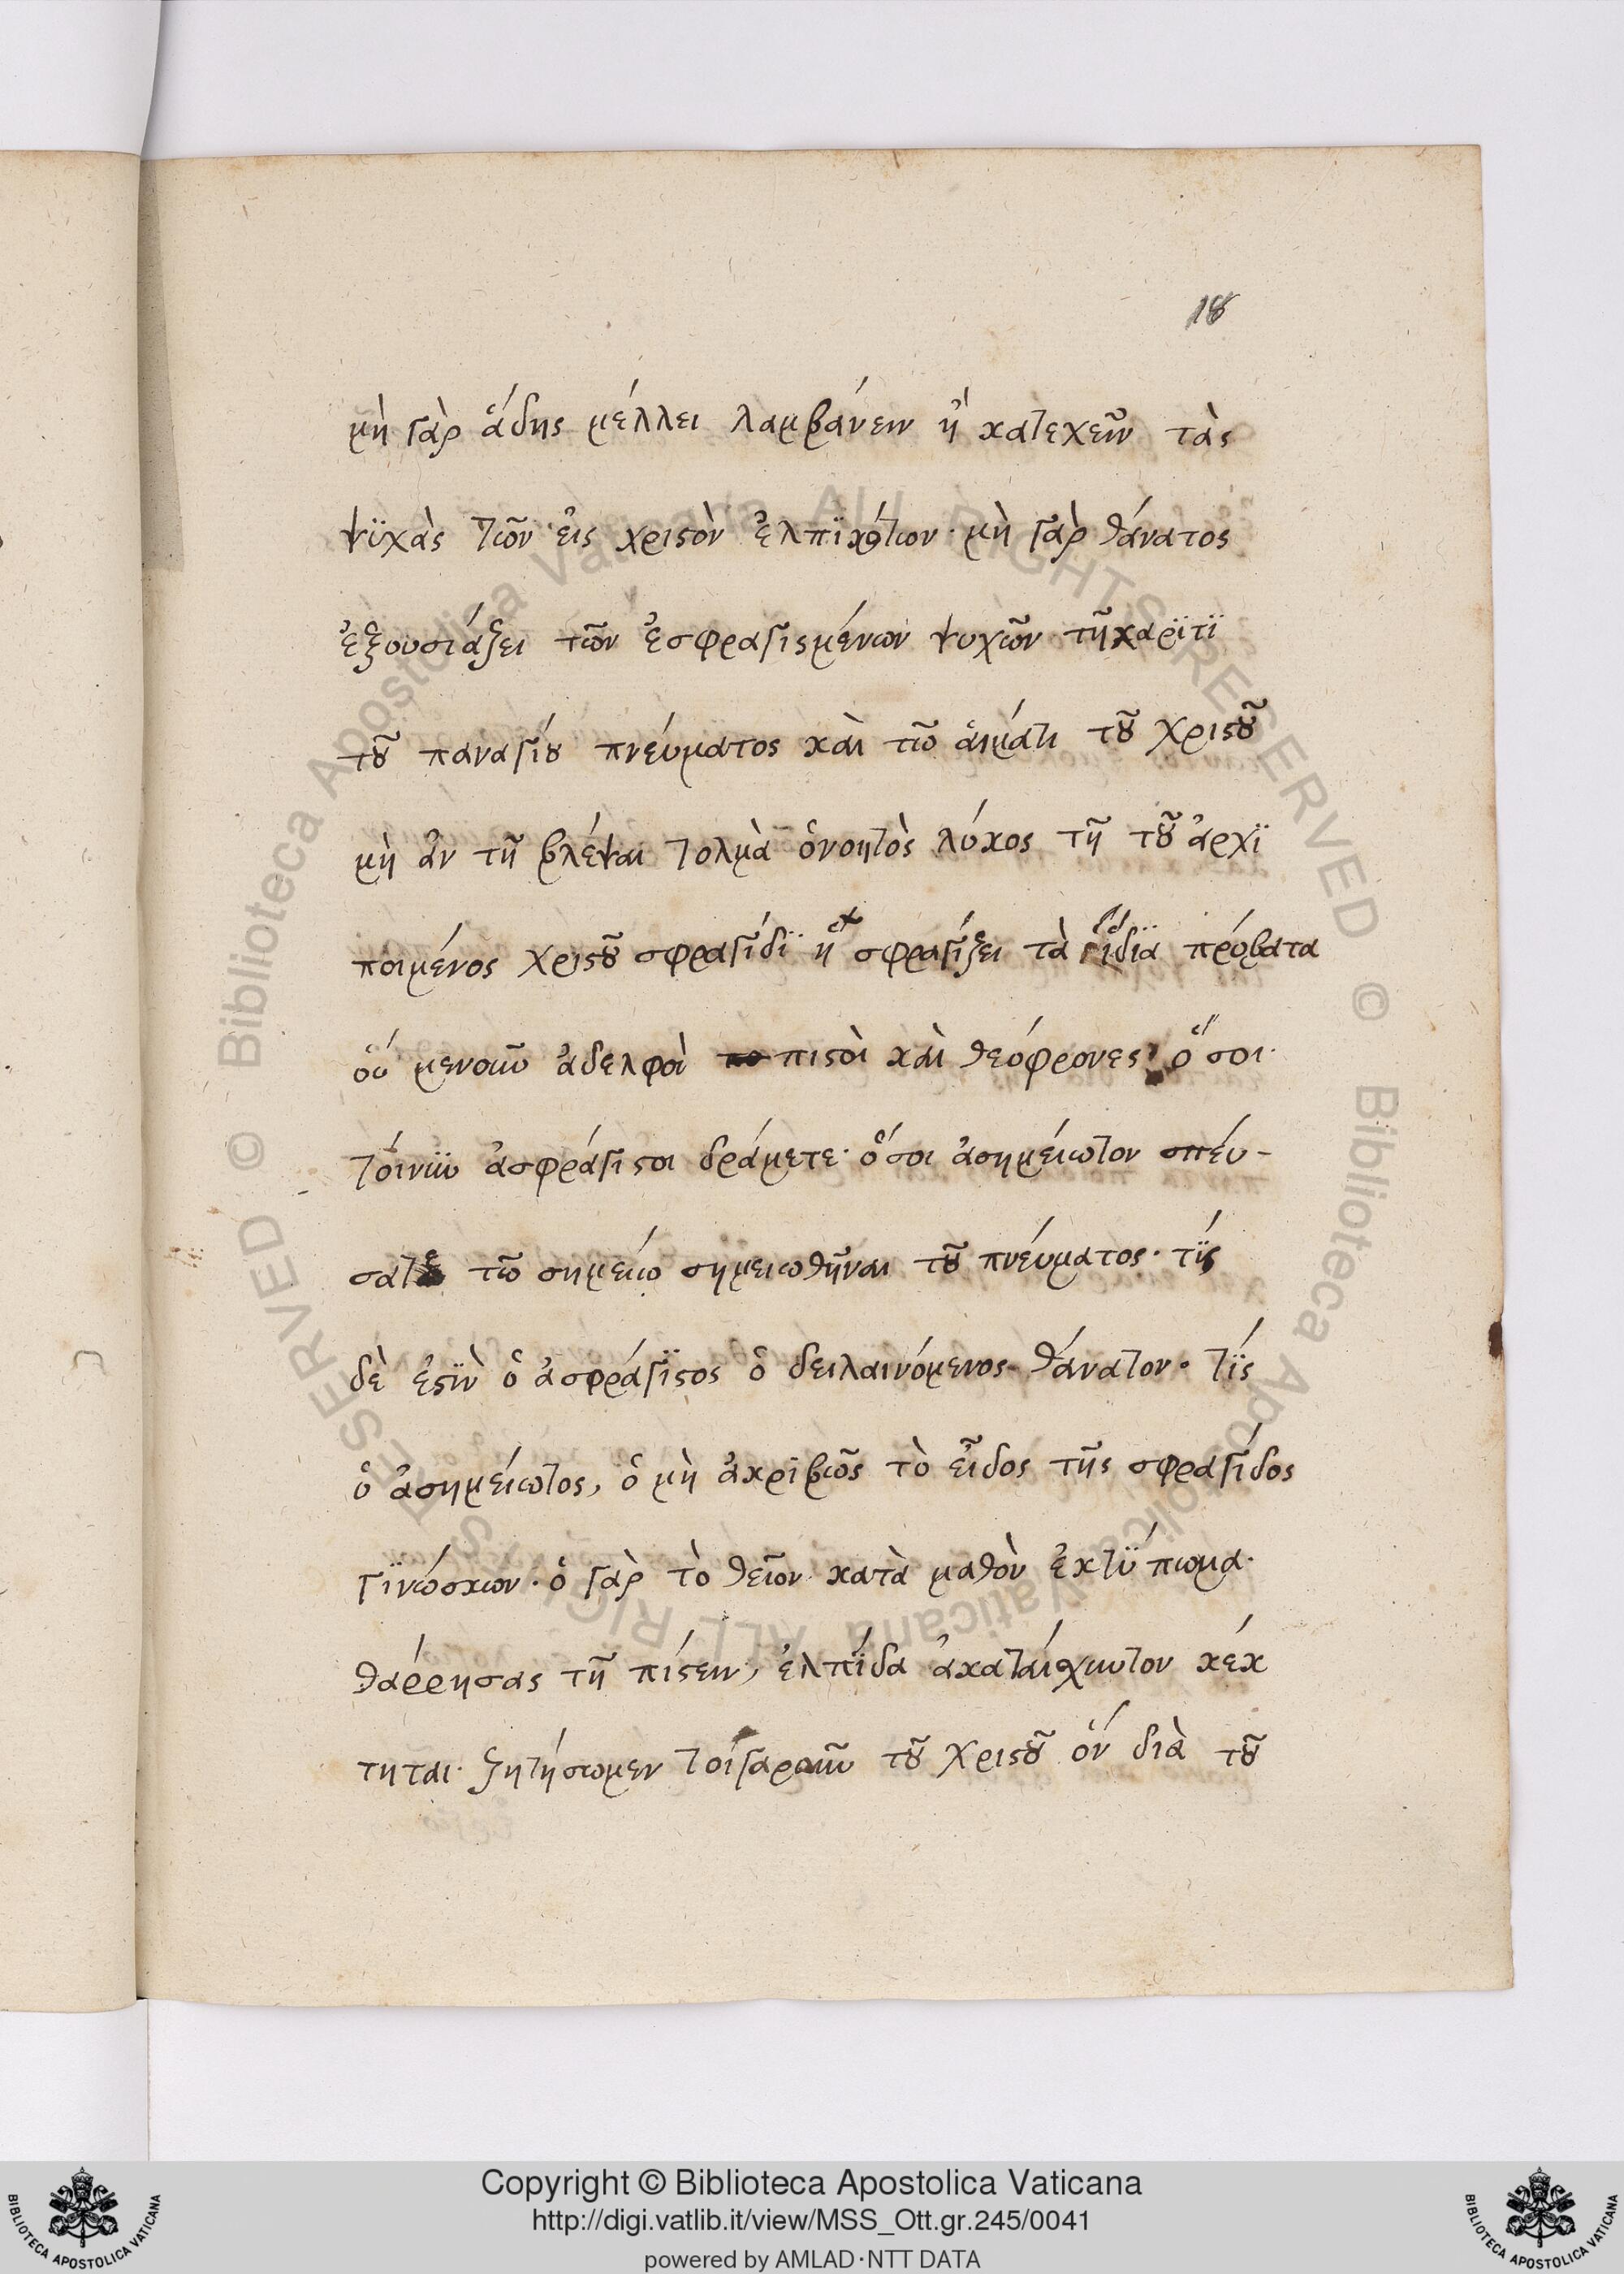 18
μὴ γὰρ ἅδης μέλλει λαμβάνειν ἢ κατεχεῖν τὰς
ψϊχὰς τῶν εἰς χριστὸν ἐλπϊκότων· μὴ γὰρ θάνατος
ἐξουσιάζει τῶν ἐσφραγισμένων ψυχῶν τῇ χαρϊτϊ
τοῦ παναγίου πνεύματος καὶ τῶ ἁιμάτι τοῦ χριστοῦ
μὴ ἀν τῆ βλέψαι τολμὰ ὁνοητὸς λύκος τῆ τοῦ ἀρχϊ
ποιμένος χριστοῦ σφραγίδϊ ἣ σφραγίζει τὰ ἴδϊα πρόβατα
οὐ μενοῦν ἀδελφοὶ πιστοὶ καὶ θεόφρονες, ὅσοι·
τοίνυν ἀσφράγιστοι δράμετε· ὅσοι ἀσημείωτον σπεύ-
σατε τῶ σημείω σημειωθῆναι τοῦ πνεύματος· τίς
δὲ ἐστϊν ὁ ἀσφράγϊστος ὁ δειλαινόμενος θάνατον· τίς
ὁ ἀσημείωτος, ὁ μὴ ἀκριβῶς τὸ εἶδος τῆς σφραγίδος
γϊνώσκων· ὁ γὰρ τὸ θεῖον κατὰ μαθὸν ἐκτύπωμα·
θάρρησας τῆ πίστειν, ἐλπίδα ἀκαταίσχυντον κέκ
τηται· ζητήσωμεν τοιγαροῦν τοῦ χριστοῦ ὁν διὰ τοῦ
Copyright © Biblioteca Apostolica Vaticana
http://digi.vatlib.it/view/MSS_Ott.gr.245/0041
powered by AMLAD·NTT DATA